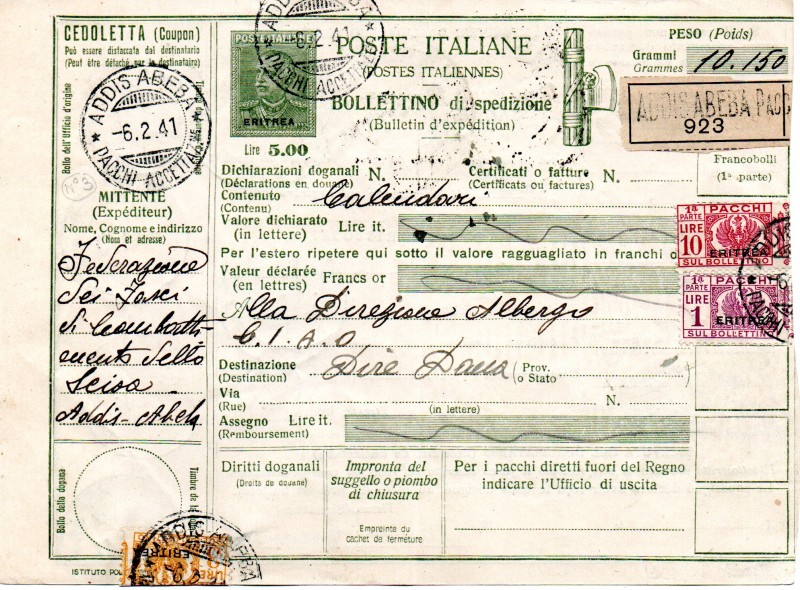 CEDOLETTA (Coupon)
Può essere distaccata dal destinatario
(Peut être détaché par le destinataire)
Bollo dell'Ufficio d'origine
ADDIS ABEBA
-6.2.41
PACCHI ACCETTAZNE
MITTENTE
(Expéditeur)
Nome, Cognome e indirizzo
(Nom et adresse)
Federazione
dei Fasci
di Combatti-
mento dello
Scioa
Addis-Abeba
Bollo della dogana
Timbre de la
ISTITUTO POL
POSTE ITALIANE
ERITREA
Lire 5.00
ADDIS ABEBA
-6.2.41
PACCHI ACCETTAZ
POSTE ITALIANE
(POSTES ITALIENNES)
BOLLETTINO di spedizione
(Bulletin d'expédition)
PESO (Poids)
Grammi
Grammes
10.150
ADDIS ABEBA PACC
923
Francobolli
(1ª parte)
Dichiarazioni doganali
(Déclarations en douane)
N.
Certificati o fatture
(Certificats ou factures)
N.
Contenuto
(Contenu)
Calendari
Valore dichiarato
(in lettere)
Lire it.
Per l'estero ripetere qui sotto il valore ragguagliato in franchi o
Valeur déclarée
(en lettres)
Francs or
1ª PARTE
PACCHI
LIRE 10
ERITREA
SUL BOLLETTINO
1ª PARTE
PACCHI
LIRE 1
ERITREA
SUL BOLLETTINO
Alla Direzione Albergo
C.I.A.O
Destinazione
(Destination)
Dire Daua
(Prov.
o Stato
)
Via
(Rue)
N.
(in lettere)
Assegno
(Remboursement)
Lire it.
Diritti doganali
(Droits de douane)
Impronta del
suggello o piombo
di chiusura
Empreinte du
cachet de fermeture
Per i pacchi diretti fuori del Regno
indicare l'Ufficio di uscita
ERITREA
LIRE